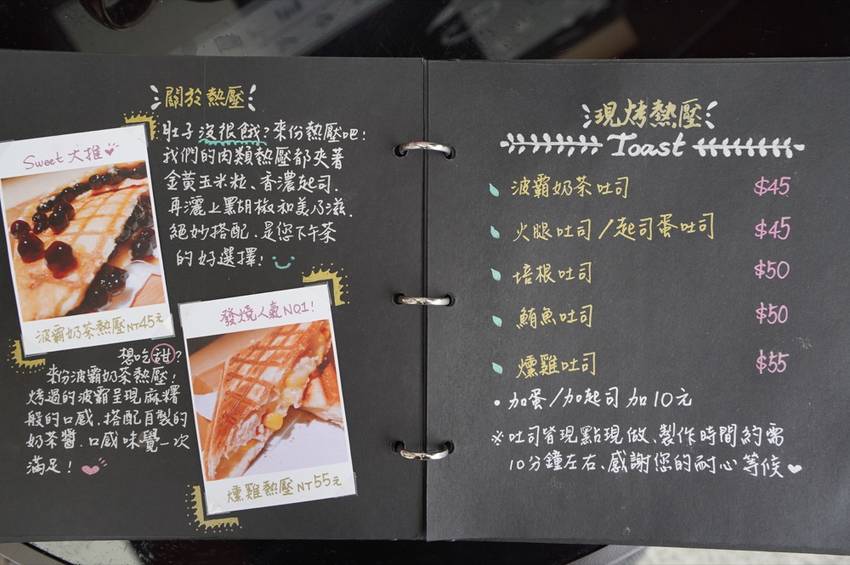 關於熱壓
肚子沒很餓?來份熱壓吧!
我們的肉類熱壓都夾著
金黃玉米粒、香濃起司.
再灑上黑胡椒和美乃滋.
絕妙搭配.是您下午茶
的好選擇!
Sweet大推
波霸奶茶熱壓NT45元
發燒人氣NO1!
燻雞熱壓NT55元
想吃甜?
來份波霸奶茶熱壓!
烤過的波霸呈現麻糬
般的口感.搭配自製的
奶茶醬.口感味覺一次
滿足!
現烤熱壓
Toast
波霸奶茶吐司 $45
火腿吐司/起司蛋吐司 $45
培根吐司 $50
鮪魚吐司 $50
燻雞吐司 $55
•加蛋/加起司 加10元
※吐司皆現點現做、製作時間約需
10分鐘左右、感謝您的耐心等候